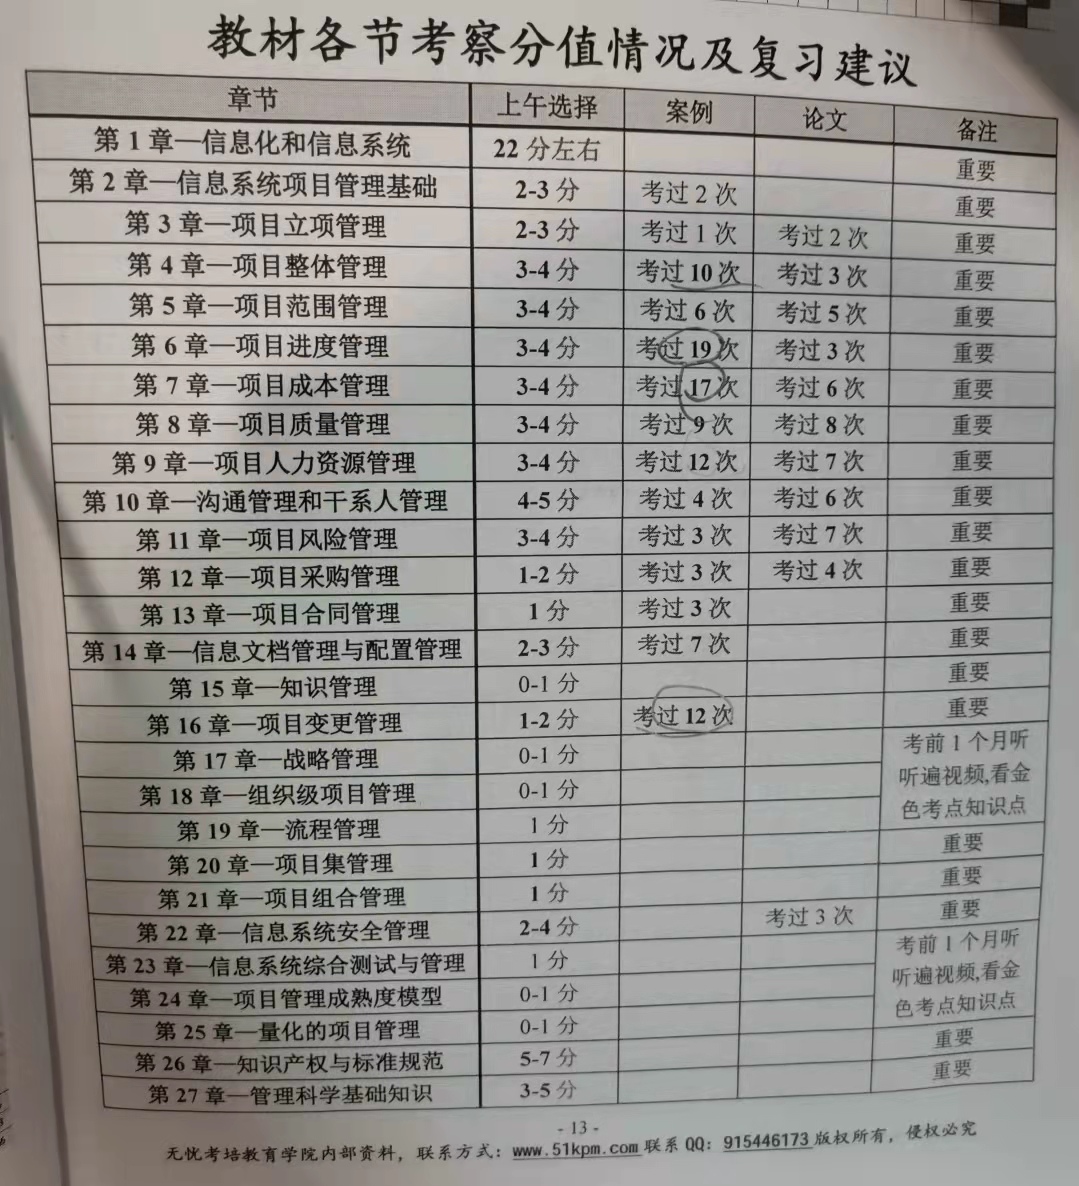 教材各节考察分值情况及复习建议
章节 上午选择 案例 论文 备注
第 1 章—信息化和信息系统 22 分左右 重要
第 2 章—信息系统项目管理基础 2-3 分 考过 2 次 重要
第 3 章—项目立项管理 2-3 分 考过 1 次 考过 2 次 重要
第 4 章—项目整体管理 3-4 分 考过 10 次 考过 3 次 重要
第 5 章—项目范围管理 3-4 分 考过 6 次 考过 5 次 重要
第 6 章—项目进度管理 3-4 分 考过 19 次 考过 3 次 重要
第 7 章—项目成本管理 3-4 分 考过 17 次 考过 6 次 重要
第 8 章—项目质量管理 3-4 分 考过 9 次 考过 8 次 重要
第 9 章—项目人力资源管理 3-4 分 考过 12 次 考过 7 次 重要
第 10 章—沟通管理和干系人管理 4-5 分 考过 4 次 考过 6 次 重要
第 11 章—项目风险管理 3-4 分 考过 3 次 考过 7 次 重要
第 12 章—项目采购管理 1-2 分 考过 3 次 考过 4 次 重要
第 13 章—项目合同管理 1 分 考过 3 次 重要
第 14 章—信息文档管理与配置管理 2-3 分 考过 7 次 重要
第 15 章—知识管理 0-1 分 重要
第 16 章—项目变更管理 1-2 分 考过 12 次 重要
第 17 章—战略管理 0-1 分 考前 1 个月听
第 18 章—组织级项目管理 0-1 分 听遍视频,看金
第 19 章—流程管理 1 分 色考点知识点
第 20 章—项目集管理 1 分 重要
第 21 章—项目组合管理 1 分 重要
第 22 章—信息系统安全管理 2-4 分 考过 3 次 重要
第 23 章—信息系统综合测试与管理 1 分 考前 1 个月听
第 24 章—项目管理成熟度模型 0-1 分 听遍视频,看金
第 25 章—量化的项目管理 0-1 分 色考点知识点
第 26 章—知识产权与标准规范 5-7 分 重要
第 27 章—管理科学基础知识 3-5 分 重要
- 13 -
无忧考培教育学院内部资料，联系方式：www.51kpm.com 联系 QQ：915446173 版权所有，侵权必究